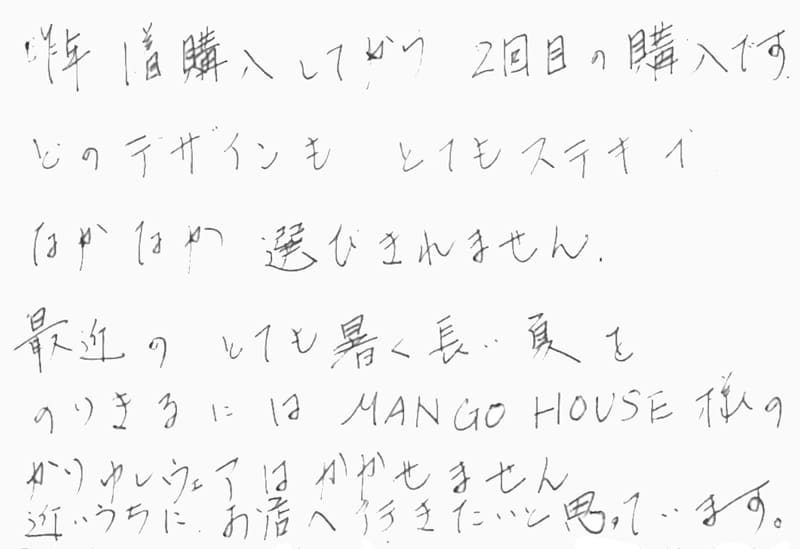 昨年1着購入してから 2回目の購入です.
どのデザインも とてもステキで
なかなか 選びきれません.
最近の とても暑く長い夏を
のりきるには MANGO HOUSE様の
かりゆしウェアはかかせません
近いうちに お店へ行きたいと思っています。